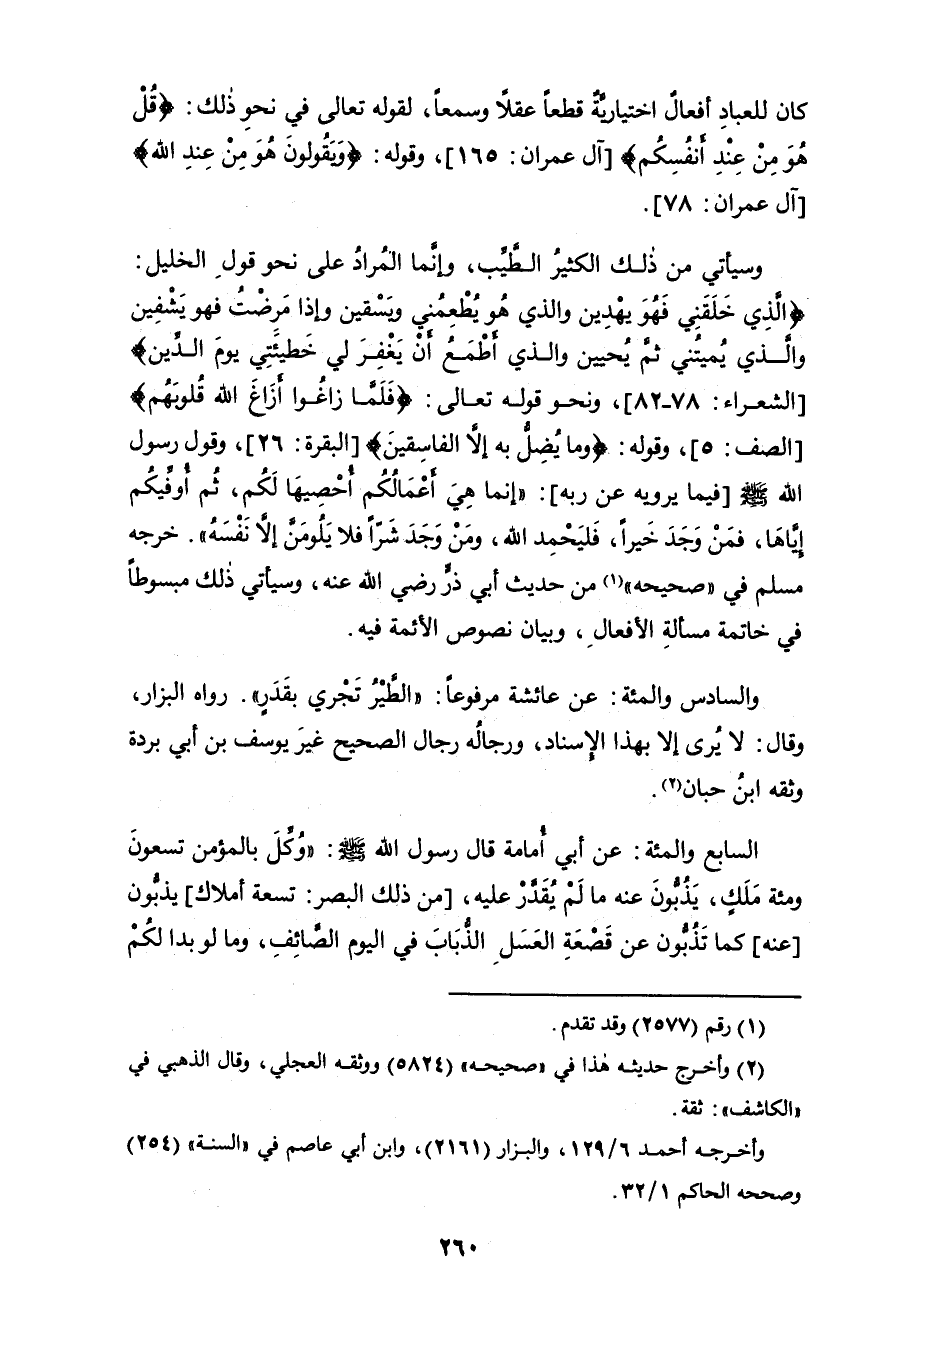 كان للعبادِ أفعالٌ اختياريَّةٌ قطعاً عقلًا وسمعاً، لقوله تعالى في نحوِ ذٰلك: ﴿قُلْ
هُوَ مِنْ عِنْدِ أَنفُسِكُم﴾ [آل عمران: ١٦٥]، وقوله: ﴿وَيَقُولونَ هُوَ مِنْ عِندِ الله﴾
[آل عمران: ٧٨].
وسيأتي من ذٰلك الكثيرُ الطَّيِّب، وإنَّما المُرادُ على نحو قولِ الخليل:
﴿الَّذِي خَلَقَنِي فَهُوَ يهْدِين والذي هُو يُطْعِمُني ويَسْقين وإذا مَرِضْتُ فهو يَشْفِين
والَّذي يُميتُني ثمَّ يُحيين والذي أَطْمَعُ أَنْ يَغْفِرَ لي خَطيئَتِي يومَ الدِّين﴾
[الشعراء: ٧٨-٨٢]، ونحو قوله تعالى: ﴿فَلَمَّا زاغُوا أَزَاغَ الله قُلوبَهُم﴾
[الصف: ٥]، وقوله: ﴿وما يُضِلُّ به إلَّا الفاسِقينَ﴾ [البقرة: ٢٦]، وقول رسول
الله ﷺ [فيما يرويه عن ربه]: «إنما هِيَ أَعْمَالُكُم أُحْصِيهَا لَكُم، ثُم أُوفِّيكُم
إيَّاهَا، فمَنْ وَجَدَ خَيراً، فَليَحْمِد الله، ومَنْ وَجَدَ شَرّاً فلا يَلُومَنَّ إلَّا نَفْسَهُ». خرجه
مسلم في «صحيحه»(١) من حديث أبي ذرٍّ رضي الله عنه، وسيأتي ذٰلك مبسوطاً
في خاتمة مسألةِ الأفعالِ، وبيان نصوص الأئمة فيه.
والسادس والمئة: عن عائشة مرفوعاً: «الطَّيْرُ تَجْري بقَدَرٍ». رواه البزار،
وقال: لا يُرى إلا بهذا الإسناد، ورجالُه رجال الصحيح غيرَ يوسف بن أبي بردة
وثقه ابنُ حبان(٢).
السابع والمئة: عن أبي أُمامة قال رسول الله ﷺ: «وُكِّلَ بالمؤمن تسعونَ
ومئة مَلَكٍ، يَذُبُّونَ عنه ما لَمْ يُقَدَّرْ عليه، [من ذلك البصر: تسعة أملاك] يذبُّون
[عنه] كما تَذُبُّون عن قَصْعَةِ العَسَلِ الذُّبَابَ في اليوم الصَّائِفِ، وما لو بدا لكُمْ
(١) رقم (٢٥٧٧) وقد تقدم.
(٢) وأخرج حديثه هٰذا في «صحيحه» (٥٨٢٤) ووثقه العجلي، وقال الذهبي في
«الكاشف»: ثقة.
وأخرجه أحمد ١٢٩/٦، والبزار (٢١٦١)، وابن أبي عاصم في «السنة» (٢٥٤)
وصححه الحاكم ٣٢/١.
٢٦٠